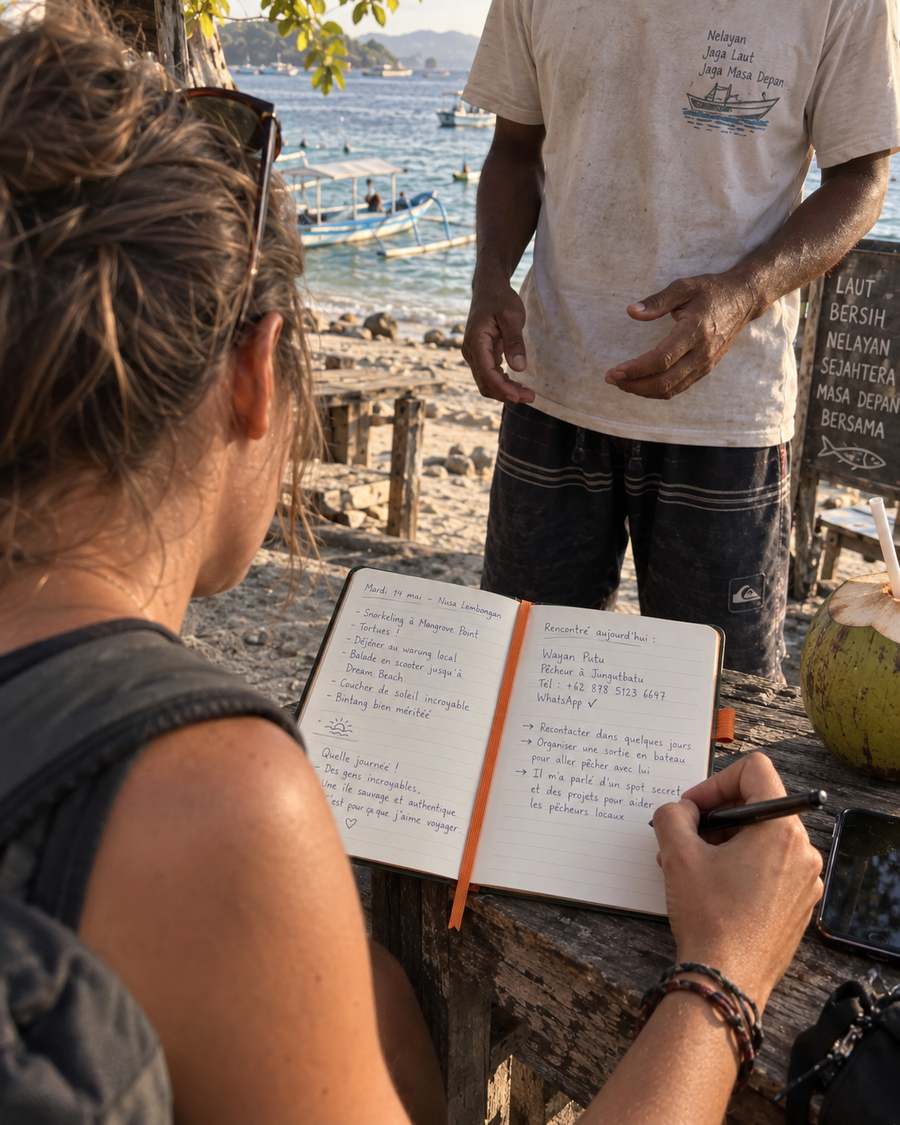 Nelayan
Jaga Laut
Jaga Masa Depan
LAUT
BERSIH
NELAYAN
SEJAHTERA
MASA DEPAN
BERSAMA
Mardi 14 mai - Nusa Lembongan
- Snorkeling à Mangrove Point
- Tortues !
- Déjener au warung local
- Balade en scooter jusqu'à
Dream Beach
- Coucher de soleil incroyable
- Bintang bien méritéé
Quelle journéé !
- Des gens incroyables,
Une île sauvage et authentique
C'est pour ça que j'aime voyager
Rencontré aujourd'hui :
Wayan Putu
Pêcheur à Jungutbatu
Tél : +62 878 5123 6647
WhatsApp ✓
→ Recontacter dans quelques jours
→ Organiser une sortie en bateau
pour aller pêcher avec lui
→ Il m'a parlé d'un spot secret
et des projets pour aider
les pêcheurs locaux